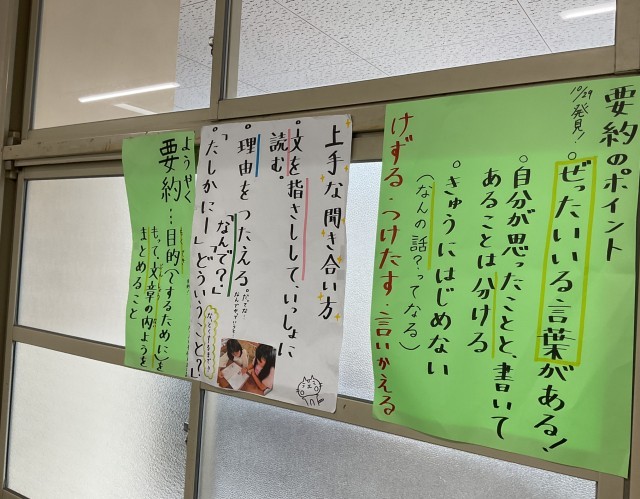 要約のポイント
10/29 発見！
。ぜったいいる言葉がある！
。自分が思ったことと、書いて
あることは分ける
。きゅうにはじめない
（なんの話？ってなる）
けずる・つけたす・言いかえる
上手な聞き合い方
文を指さしして、いっしょに
読む。
理由をつたえる。
「なんで？」
「たしかにー」「どういうこと？」
ようやく
要約…目的（〇するために）を
もって、文章の内ようを
まとめること